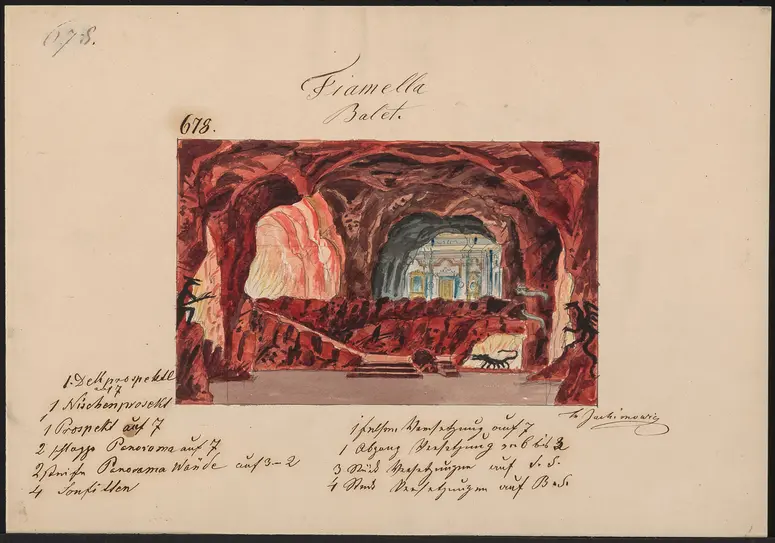 678.
Fiamella
Balet.
678.
Th Jachimowicz
1 Dekprospekt
auf 7
1 Nischenprosekt
1 Prospekt auf 7
2 Panorama auf 7
2 Panorama Wände auf 3-2
4 Soufitten
1 Versetzung auf 7
1 Abgang Versetzung bis 2
3 Stück Versetzungen auf
4 Stück Versetzungen auf